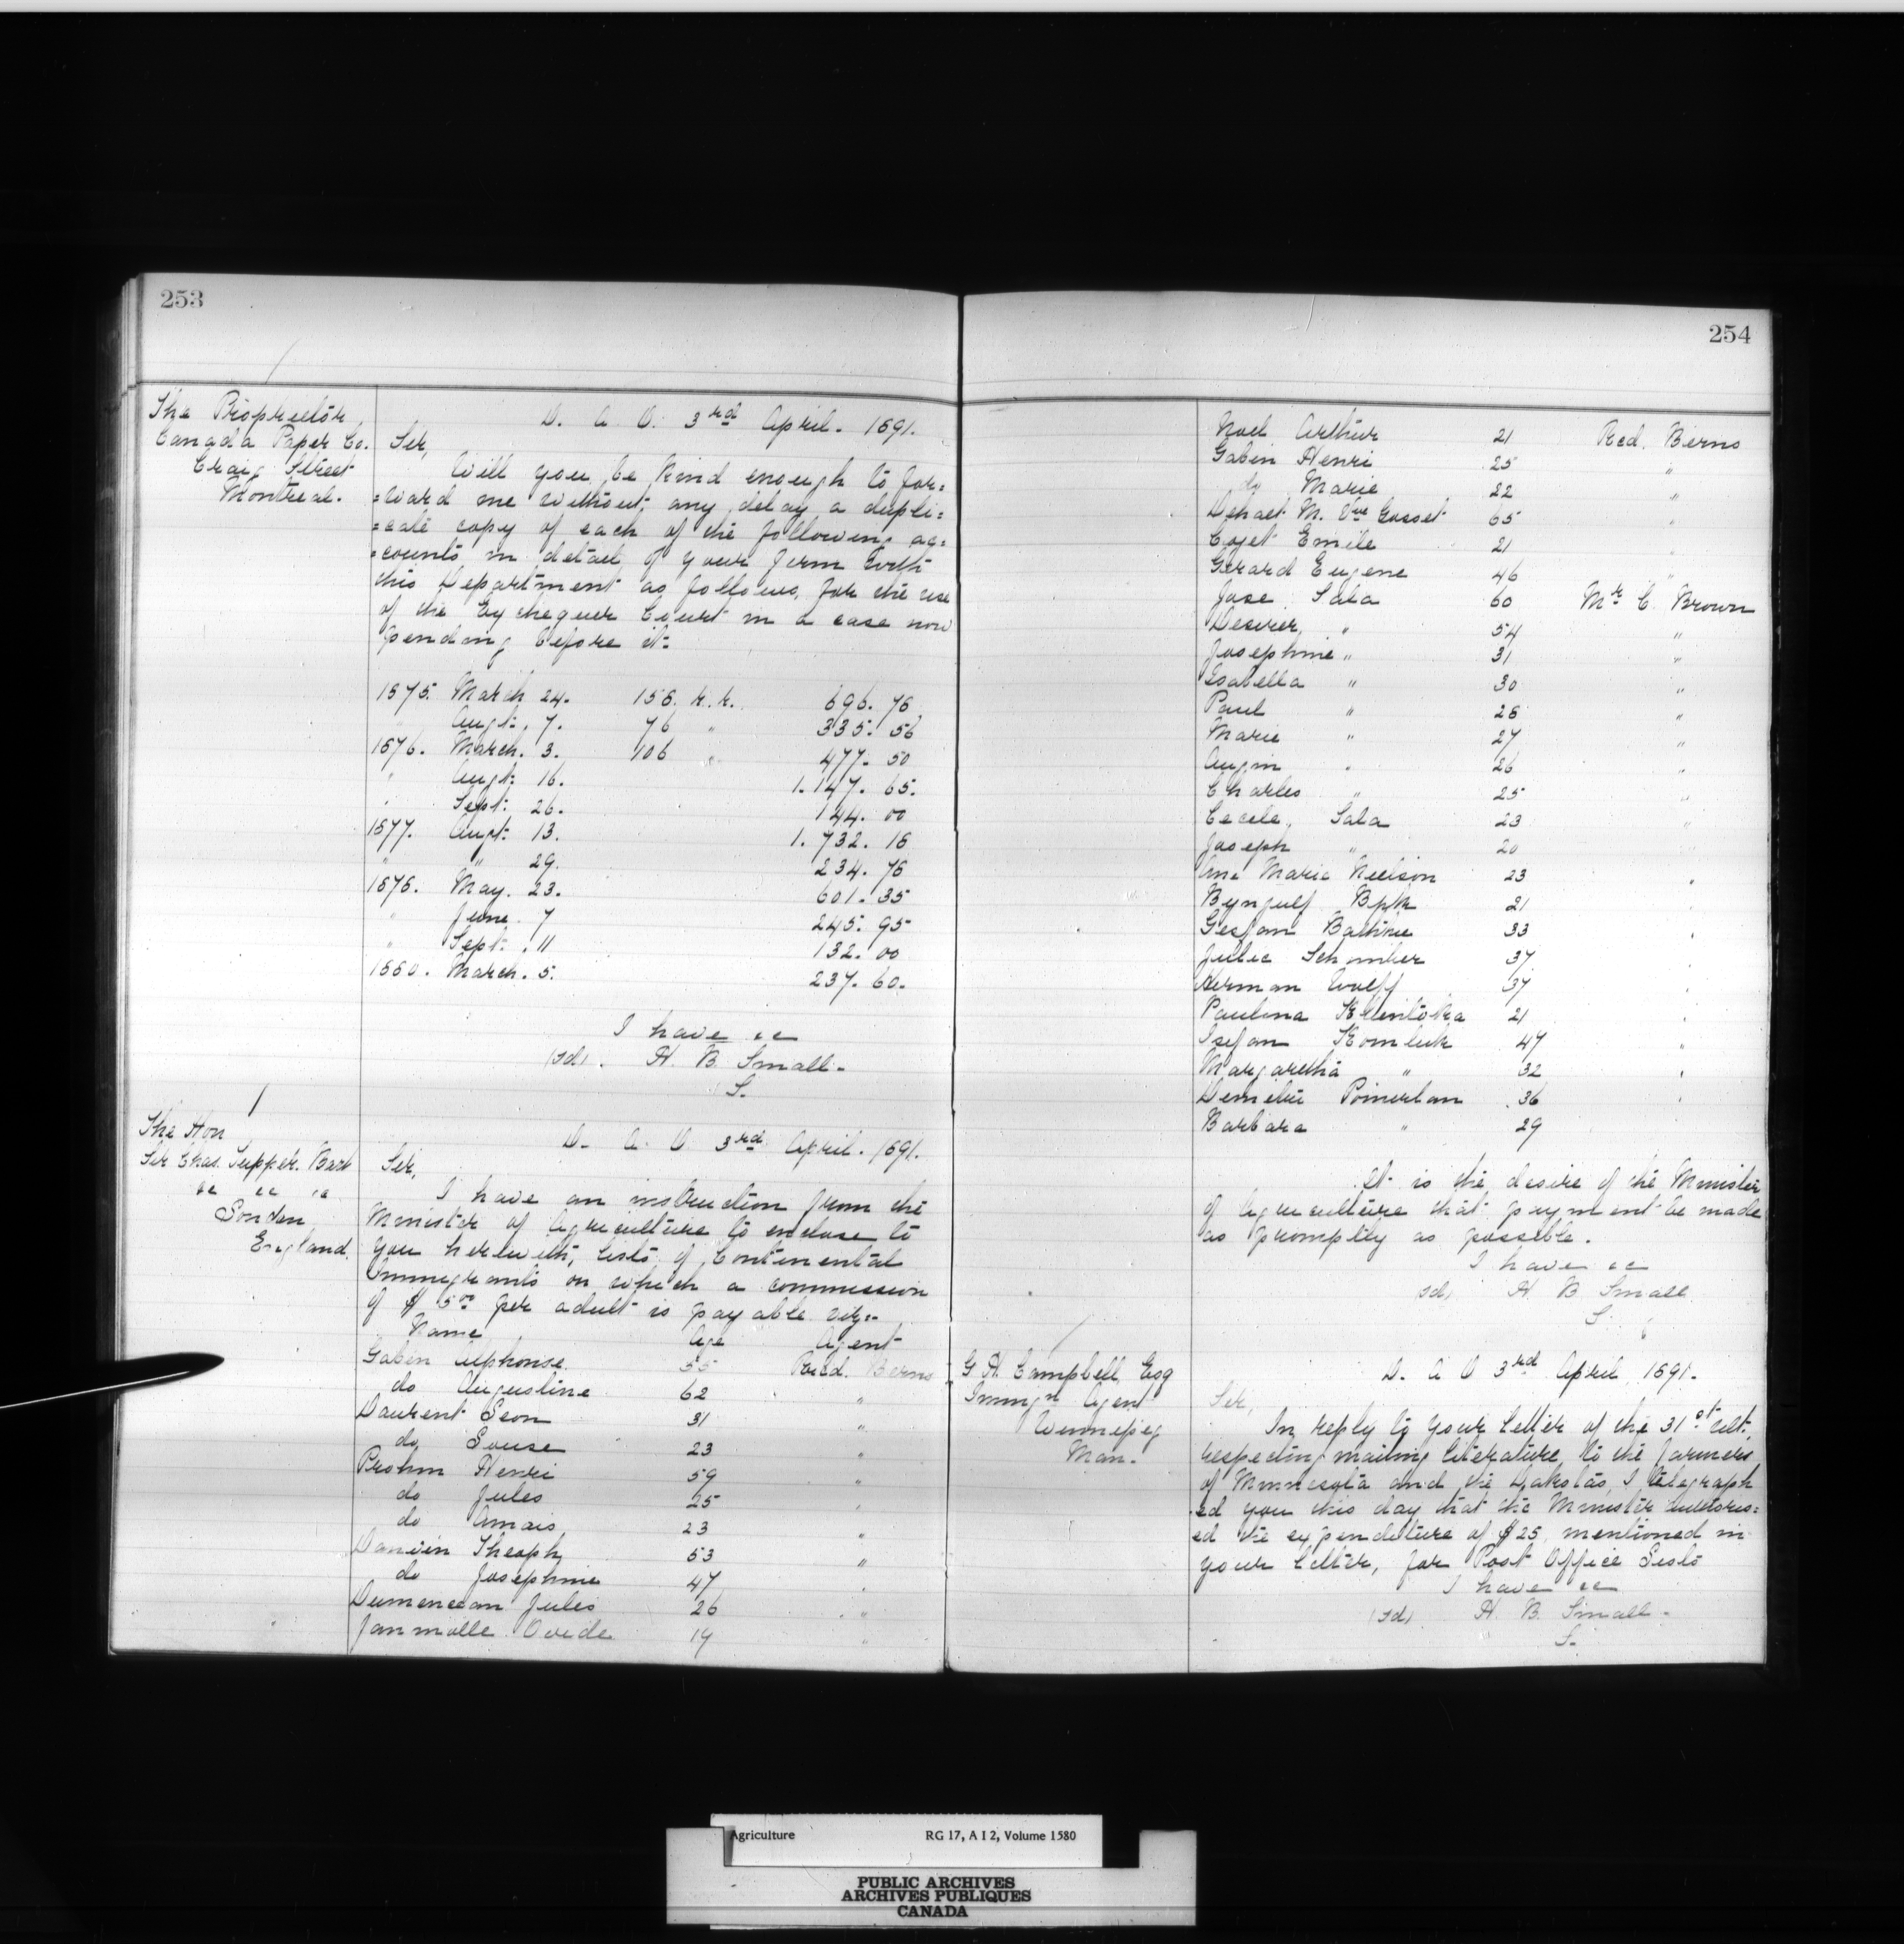 253
The Proprietor
Canada Paper Co.
Craig Street
Montreal.
D. A. O. 3rd April. 1891.
Sir,
Will you be kind enough to for=
=ward me without any delay a dupli=
=cate copy of each of the following ac=
=counts in detail of your firm with
this Department as follows, for the use
of the Exchequer Court in a case now
pending before it:
1875. March 24. 156. r.r. 696. 78
" Augt. 7. 76 " 335. 56
1876. March. 3. 106 " 477. 50
" Augt. 16. 1.147. 65.
" Sept. 26. 144. 00
1877. Augt. 13. 1.732. 18
" " 29. 234. 78
1878. May. 23. 601. 35
" June. 7 245. 95
" Sept. 11 132. 00
1880. March. 5. 237. 60.
I have &c
(sd). H. B. Small.
S.
The Hon
Sir Chas. Tupper. Bart
&c &c &c
London
England.
D. A. O 3rd April. 1891.
Sir,
I have an instruction from the
Minister of Agriculture to enclose to
you herewith, lists of Continental
Immigrants on which a commission
of $ 5.00 per adult is payable viz:-
Name Age Agent
Gabin Alphonse 55 Berns
do Augustine 62 "
Laurent Leon 31 "
do Louise 23 "
Prohm Henri 59 "
do Jules 25 "
do Amais 23 "
Theoph 53 "
do Josephine 47 "
Jules 26 "
Ovide 19 "
254
Noel Arthur 21 Red. Berns
Gabin Henri 25 "
do Marie 22 "
M. Vve Gosset 65 "
Cojet Emile 21 "
Gerard Eugene 46 "
Jose Sala 60 Mr C. Brown
Desirer " 54 "
Josephine " 31 "
Isabella " 30 "
Paul " 28 "
Marie " 27 "
" 26 "
Charles " 25 "
Cecele, Sala 23 "
Joseph " 20 "
Ane Marie Neelson 23 "
21 "
33 "
Julie 37 "
Herman Wolff 37 "
Paulina 21 "
47 "
Margaretha " 32 "
36 "
Barbara " 29
It is the desire of the Minister
of Agriculture that payment be made
as promptly as possible.
I have &c
(sd) H B Small
S.
G H. Campbell, Esq
Immign Agent
Winnipeg
Man.
D. A O 3rd April 1891.
Sir,
In reply to your letter of the 31st ult.
respecting mailing literature, to the farmers
of Minnesota and the Dakotas, I telegraph
ed you this day that the Minister authoris=
ed the expenditure of $25, mentioned in
your letter, for Post Office Lists
I have &c
(sd) H. B. Small.
S.
Agriculture RG 17, A I 2, Volume 1580
PUBLIC ARCHIVES
ARCHIVES PUBLIQUES
CANADA